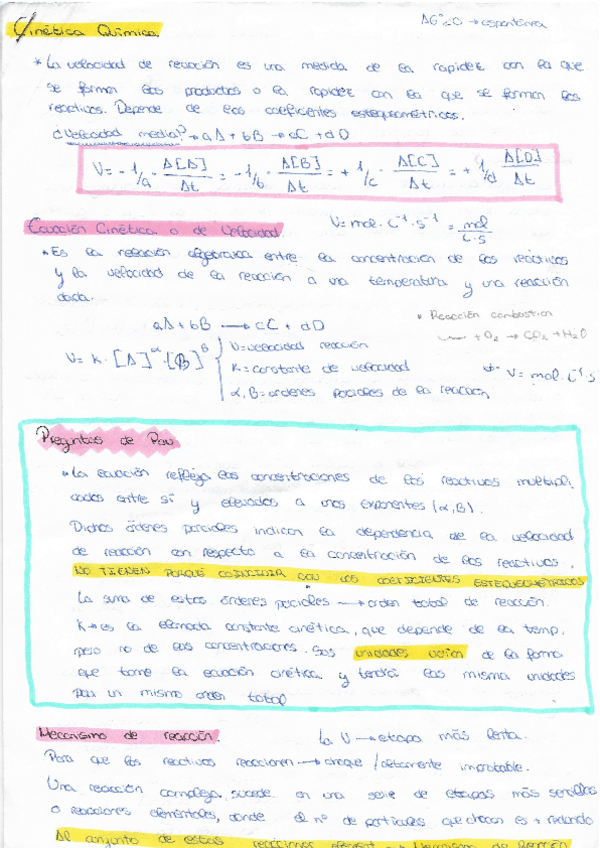 Cinética Química.
ΔGº<0 → espontánea
* La velocidad de reacción es una medida de la rapidez con la que
se forman los productos o la rapidez con la que se forman los
reactivos. Depende de los coeficientes estequeométricos.
¿Velocidad media? → aA + bB → cC + dD
V = - 1/a · Δ[A]/Δt = - 1/b · Δ[B]/Δt = + 1/c · Δ[C]/Δt = + 1/d Δ[D]/Δt
Ecuación Cinética o de Velocidad.
V = mol · L⁻¹ · s⁻¹ = mol/L·s
* Es la relación algebraica entre la concentración de los reactivos
y la velocidad de la reacción a una temperatura y una reacción
dada.
* Reacción combustión
+ O₂ → CO₂ + H₂O
aA + bB → cC + dD
V = k · [A]^α · [B]^β
V = velocidad reacción
K = constante de velocidad
α, β = órdenes parciales de la reacción
V = mol · L⁻¹ · s⁻¹
Preguntas de Pau
* La ecuación refleja las concentraciones de los reactivos multipli
cados entre sí y elevados a unos exponentes (α, β).
Dichos órdenes parciales indican la dependencia de la velocidad
de reacción con respecto a la concentración de los reactivos.
NO TIENEN PORQUE COINCIDIR CON LOS COEFICIENTES ESTEQUEOMÉTRICOS
La suma de estos órdenes parciales → orden total de reacción.
K → es la llamada constante cinética, que depende de la temp.
pero no de las concentraciones. Sus unidades varían de la forma
que tome la ecuación cinética y tendrá las misma unidades
para un mismo orden total
Mecanismo de reacción.
la V → etapa más lenta.
Para que los reactivos reaccionen → choque / altamente improbable.
Una reacción compleja, sucede en una serie de etapas más sencillas
o reacciones elementales, donde el nº de partículas que chocan es + reducido
Al conjunto de estas reacciones → Mecanismo de Reacción